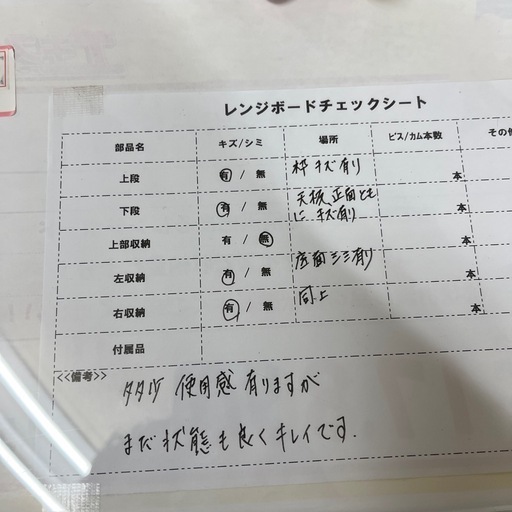 レンジボードチェックシート
部品名 キズ/シミ 場所 ビス/カム本数 その
上段 有 / 無 枠キズ有り 本
下段 有 / 無 天板、正面とも にキズ有り 本
上部収納 有 / 無 本
左収納 有 / 無 底面シミ有り 本
右収納 有 / 無 同上 本
付属品
<<備考>>
使用感有りますが
まだ状態も良くキレイです.